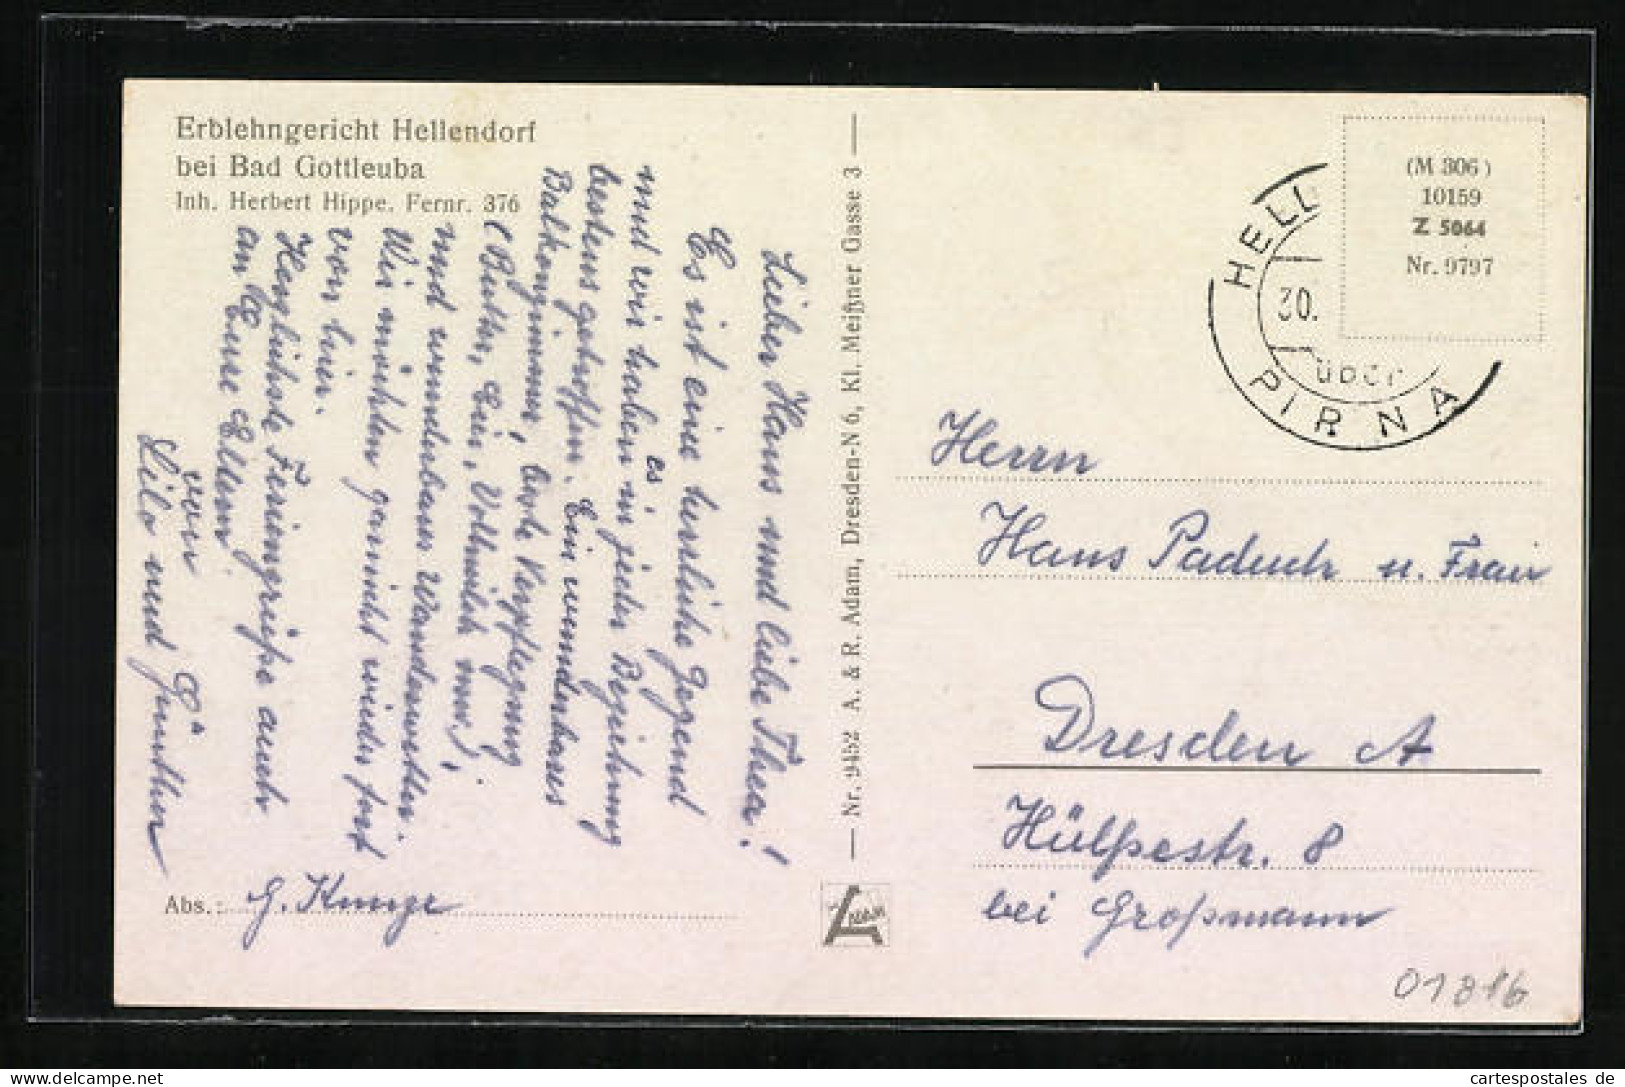 Erblehngericht Hellendorf
bei Bad Gottleuba
Inh. Herbert Hippe. Fernr. 376
Lieber Hans und liebe Thea!
Es ist eine herrliche Gegend
und wir haben es in jeder Beziehung
bestens getroffen. Ein wunderbares
Balkonzimmer, beste Verpflegung
(Butter, Eier, Vollmilch usw.)
und wunderbares Wanderwetter.
Wir möchten garnicht wieder fort
von hier.
Herzlichste Feriengrüße auch
an Eure Eltern
von
Lilo und Günther
Abs.: G. Kunze
— Nr. 9452 A. & R. Adam, Dresden-N 6, Kl. Meißner Gasse 3 —
ADAM
HELL
30.
über
PIRNA
(M 306)
10159
Z 5064
Nr. 9797
Herrn
Hans Paduch u. Frau
Dresden A
Hülßestr. 8
bei Großmann
01816
www.cartespostales.de